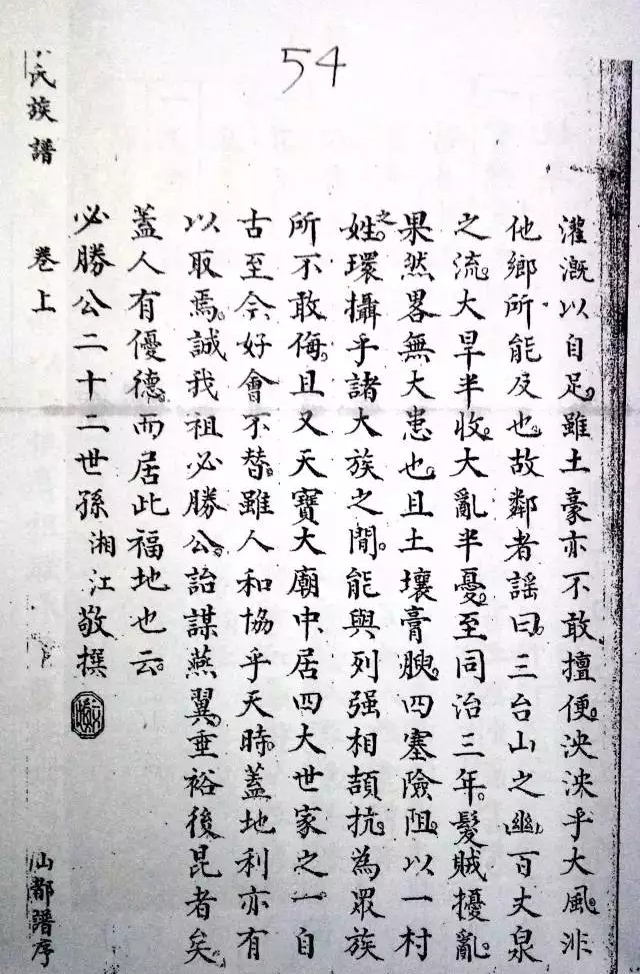 54
灌溉以自足。雖土豪亦不敢擅便。泱泱乎大風。非
他鄉所能及也。故鄰者謠曰。三台山之幽。百丈泉
之流。大旱半收。大亂半憂。至同治三年。髮賊擾亂。
果然畧無大患也。且土壤膏腴。四塞險阻。以一村
姓之環攝乎諸大族之間。能與列强相頡抗。為眾族
所不敢侮。且又天寶大廟中。居四大世家之一。自
古至今。好會不替。雖人和協乎天時。蓋地利亦有
以取焉。誠我祖必勝公。詒謀燕翼。垂裕後昆者矣。
蓋人有優德。而居此福地也云。
必勝公二十二世孫湘江敬撰
氏族譜 卷上 山都譜序